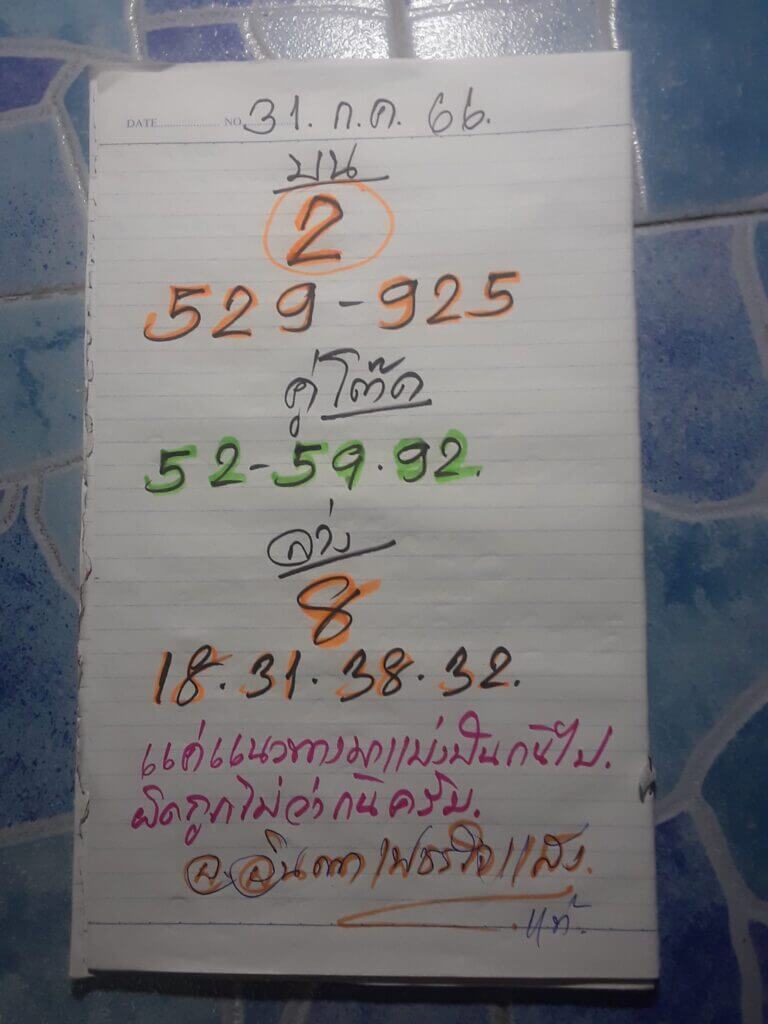 DATE NO 31. ก.ค. 66.
บน
2
529-925
คู่โต๊ด
52-59.92.
ล่าง
8
18.31.38.32.
แค่แนวทางมาแบ่งปันกันไป.
ผิดถูกไม่ว่ากันครับ.
อ.อินตา เพชรใจแสง.
แท้.